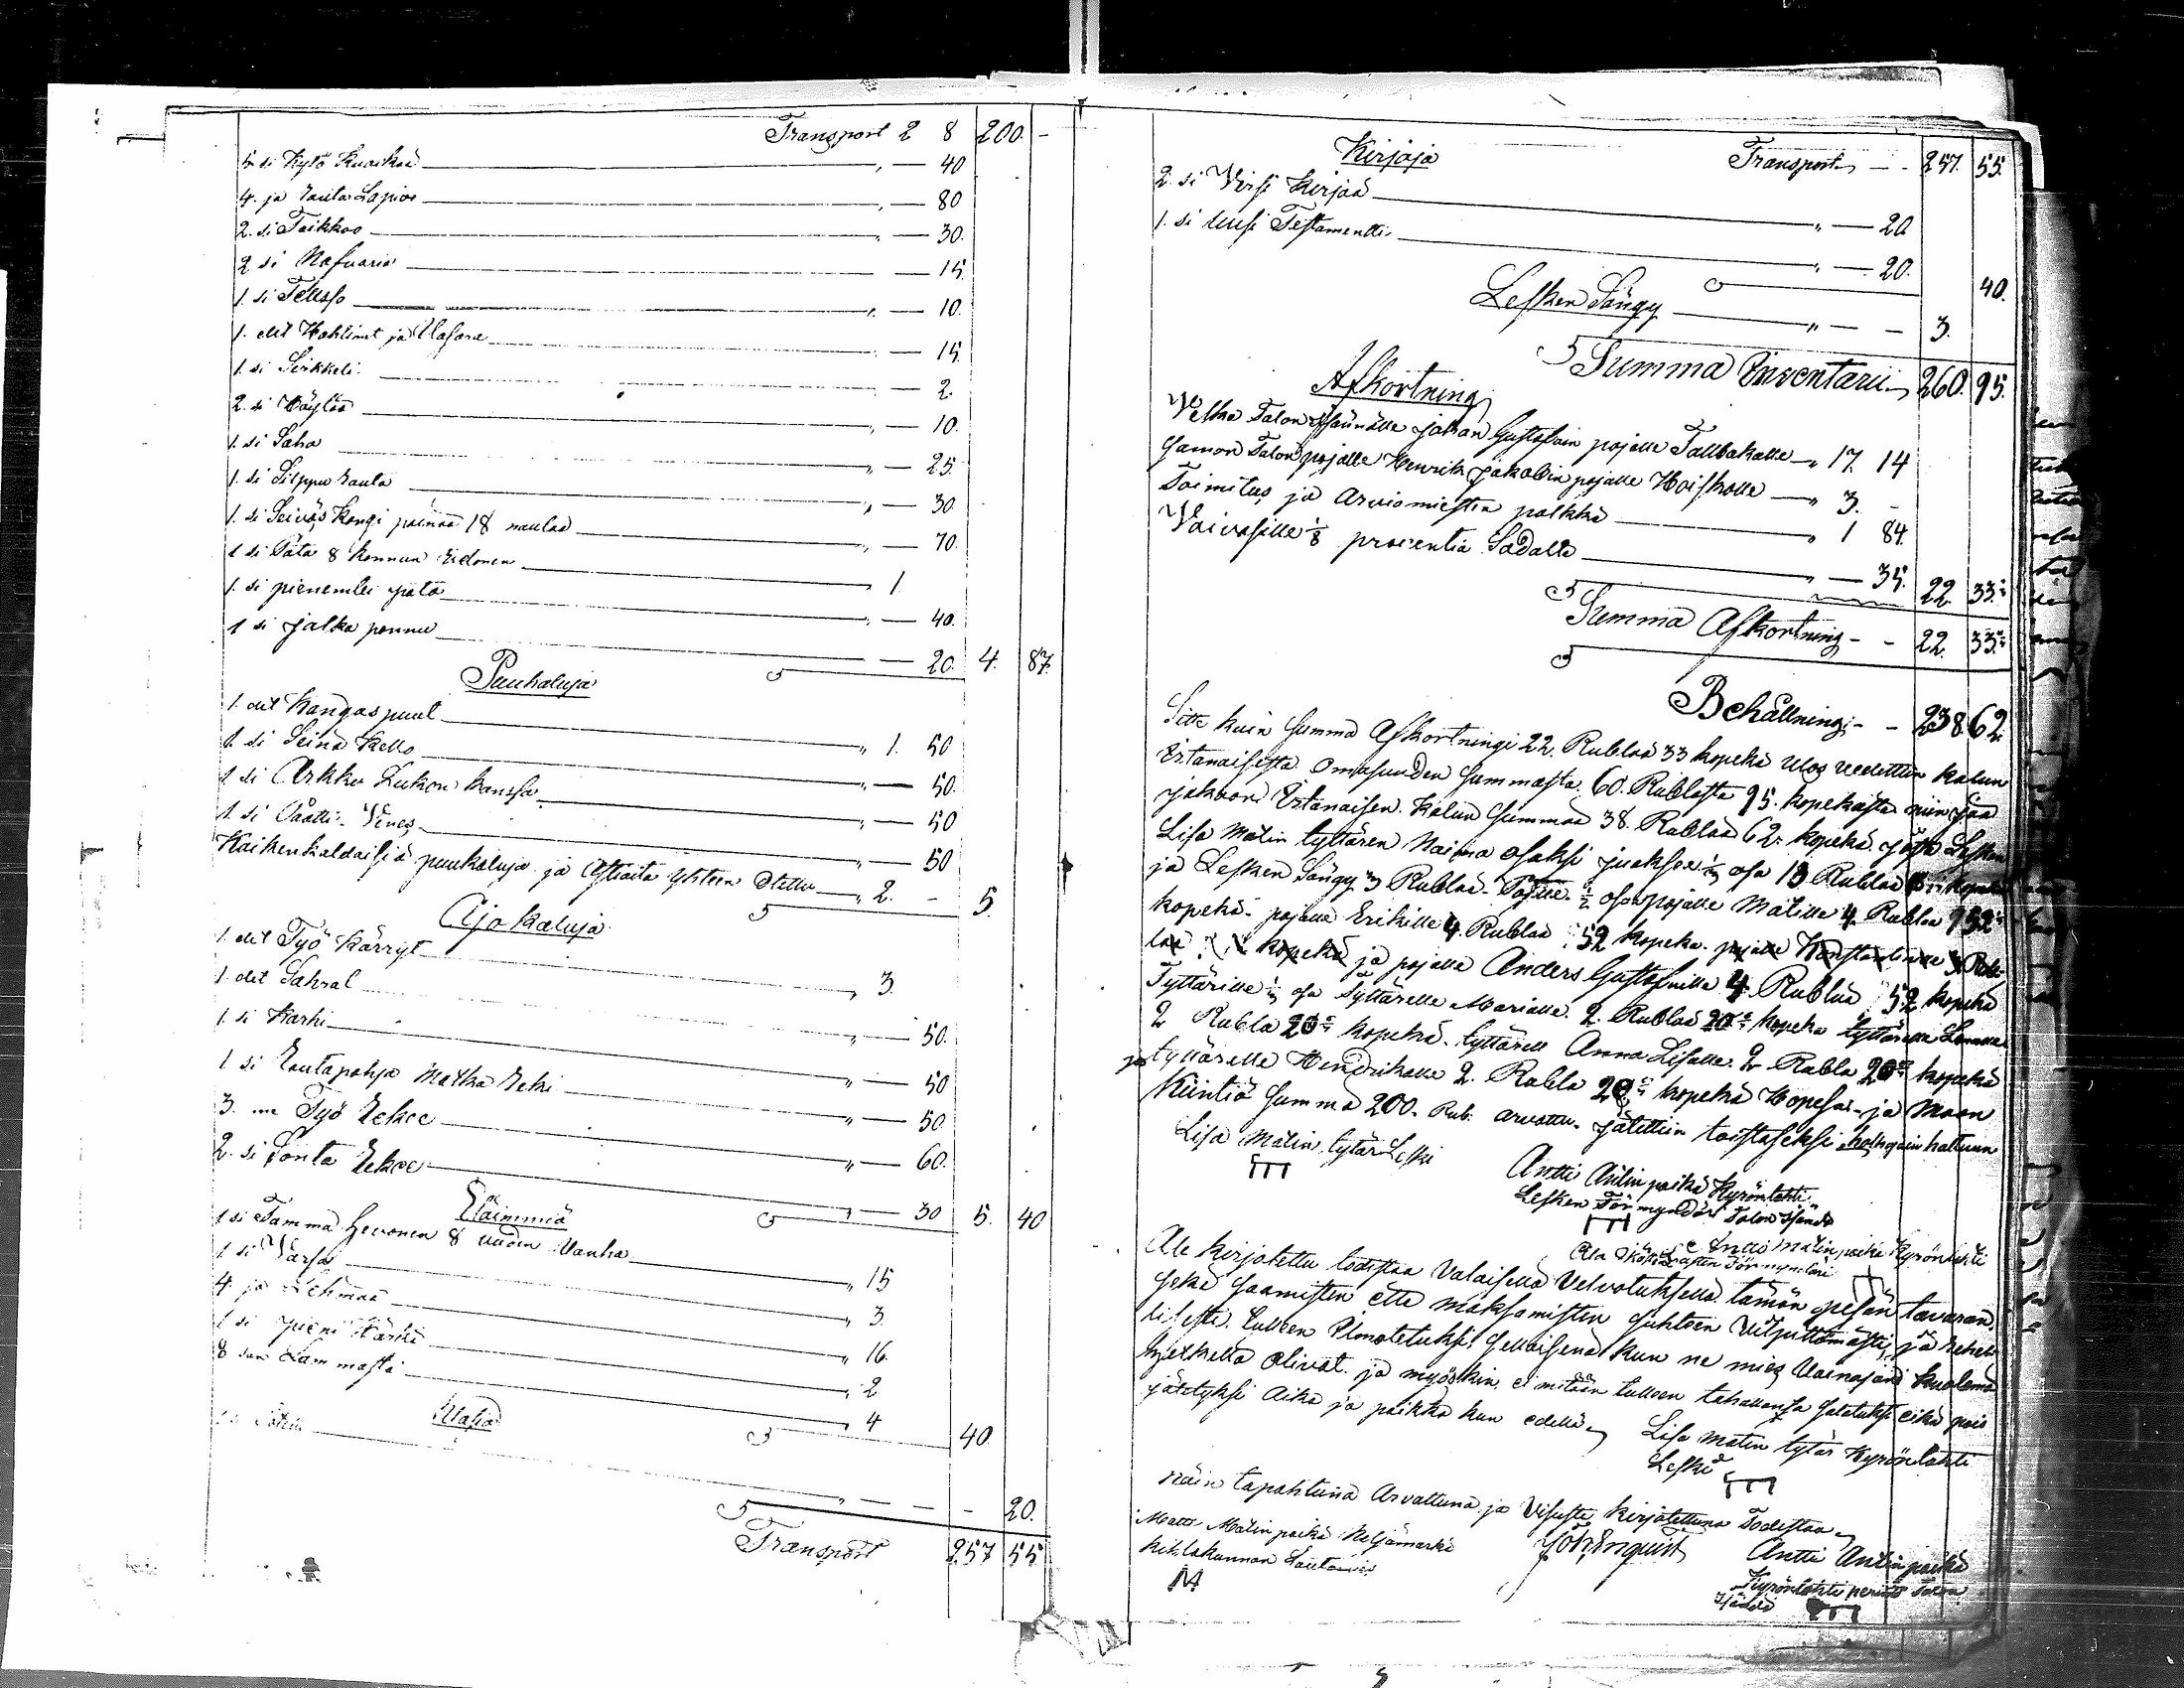 Transport 2 8 200. -
5. si Kytö Kuokkaa „ — 40
4. ja rauta Lapiot „ — 80
2. si Taikkoo „ — 30.
2 si Nafvaria — 15.
1. si Telsso „ — 10.
1. del Hohtimet ja Vasara — 15
1. si Sirkkeli — 2.
2. si Höylää „ — 10.
1. si Saha „ — 25.
1. si Silppu rauta „ — 30
1. si Seiväs Kangi painaa 18 naulaa „ — 70.
1 si Pata 8 Kannun Vetonen „ 1.
1. si pienembi pata „ — 40.
1 si jalka pannu — 20. 4. 87.
Puukaluja
1. del Kangas puut „ 1. 50
1. si Seinä Kello „ — 50.
1 si Arkku Lukon kanssa „ — 50
1. si Paatti-Venes „ — 50
Kaikenkaldaisia puukaluja ja Astioita yhteen Otettu „ 2. - 5.
Ajo kaluja
1. del Työ Kärryt „ 3.
1. det Sahrat „ — 50.
1. si Karhi „ — 50
1 si Rautapohja Matka Reki „ — 50
3. me Työ Rekee „ — 60.
2. si Sonta Rekee „ — 30 5. 40
Eläimmiä
1 si Tamma hevonen 8 vuoden Vanha „ 15
1 si Varsa „ 3.
4 ja Lehmää „ 16.
1 si pieni Härkä „ 2
8 san Lammasta „ 4 40.
20.
Transport 257 55
Kirjoja Transport - - 257. 55.
2. si Virsi Kirjaa „ — 20
1. si Uusi Testamentti „ — 20. 40.
Lesken Sängy „ — - 3.
Summa Inventarii 260. 95.
Afkortning
Velka Talon Isännälle Johan Gustafsin pojalle Tallbakalle „ 17. 14
Saman Talon pojalle Henrik Jakobin pojalle Hoiskolle „ 3. -
Toimitus ja Arviomiesten palkka „ 1 84.
Vaivasille 1/8 procentia Sadalta „ — 35. 22. 33.
Summa Afkortning - - 22. 33.
Behållning - - 238 62.
Sitte kuin Summa Afkortningi 22. Rublaa 33 kopekä Ulos vedettiin kalun
Irtanaisesta Omasuuden Summasta. 60. Rublasta 95. kopekästa niin jää
jakoon Irtanaisen Kalun Summaa 38. Rublaa 62. kopekä josta Lesken
Lisa Matin tyttären Naima Osaksi juoksee 1/3 osa 13 Rublaa
ja Lesken Sängy 3 Rublaa. pojalle Matille 4 Rublaa 52
kopekä. pojalle Erikille 4. Rublaa 52 kopeka.
ja pojalle Anders Gustafille 4. Rublaa 52 kopekä
Tyttärille 1/3 osa Tyttärelle Marialle. 2. Rublaa 20 kopeka tyttärelle
2 Rubla 20 kopekä. tyttärell Anna Lisalle. 2 Rubla 20 kopekä
ja tyttärelle Hendrikalle 2. Rubla 20 kopekä Hopesa - ja Maan
Kiintiä Summa 200. Rub. arvattu. jätettiin toistaseksi holhojain haltuun
Lisa Matin tytär Leski
Antti Antin poika Kyrönlahti
Lesken Förmyndäri Talon Isändä
Antti Matin poika Kyrönlahti
Ala Ikäisten Lasten Förmyndäri
Ale kirjotettu todistaa Valaisella Velvotuksella. tämän pesän tavaran.
Sekä Saamisten että maksamisten Suhteen Vilpittömästi, ja rehel-
lisesti. tulleen Ilmotetuksi Sellaisena kun ne mies Vainajani kuolema
hetkellä olivat. ja myöskin ei mitään tulleen tahallansa Salatuksi eikä pois
jätetyksi Aika ja paikka kun edellä
Lisa Matin tytär Kyrönlahti
Leski
Näin tapahtuna Arvattuna ja Visusti kirjotettuna Todistaa
Matts Matin poika Neljämarkä
Kihlakunnan Lautamies
Joh. Enquist
Antti Antin poika
Kyrönlahti perindö Talon
Isändä